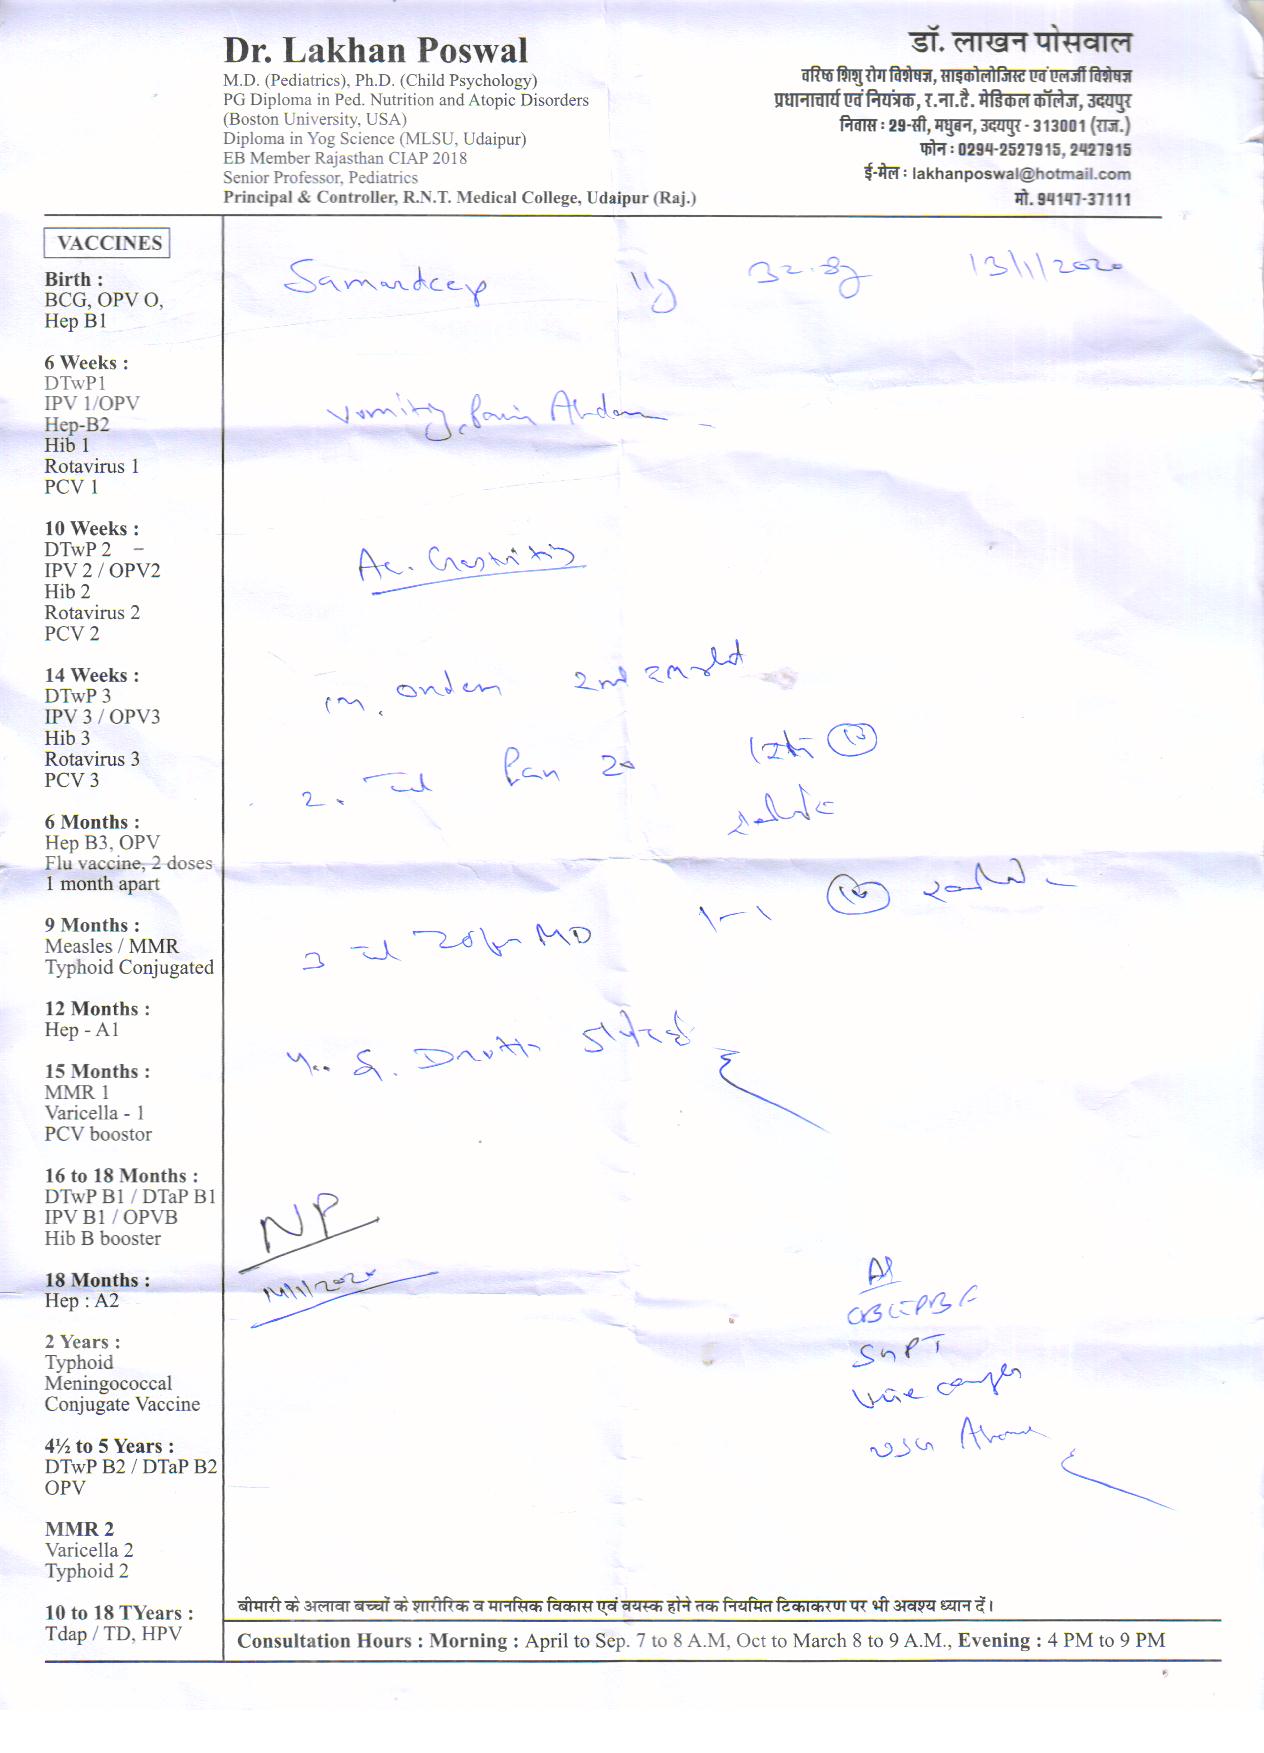 Dr. Lakhan Poswal
M.D. (Pediatrics), Ph.D. (Child Psychology)
PG Diploma in Ped. Nutrition and Atopic Disorders
(Boston University, USA)
Diploma in Yog Science (MLSU, Udaipur)
EB Member Rajasthan CIAP 2018
Senior Professor, Pediatrics
Principal & Controller, R.N.T. Medical College, Udaipur (Raj.)
डॉ. लाखन पोसवाल
वरिष्ठ शिशु रोग विशेषज्ञ, साइकोलोजिस्ट एवं एलर्जी विशेषज्ञ
प्रधानाचार्य एवं नियंत्रक, र.ना.टै. मेडिकल कॉलेज, उदयपुर
निवास : 29-सी, मधुबन, उदयपुर - 313001 (राज.)
फोन : 0294-2527915, 2427915
ई-मेल : lakhanposwal@hotmail.com
मो. 94147-37111
VACCINES
Birth :
BCG, OPV O,
Hep B1
6 Weeks :
DTwP1
IPV 1/OPV
Hep-B2
Hib 1
Rotavirus 1
PCV 1
10 Weeks :
DTwP 2 –
IPV 2 / OPV2
Hib 2
Rotavirus 2
PCV 2
14 Weeks :
DTwP 3
IPV 3 / OPV3
Hib 3
Rotavirus 3
PCV 3
6 Months :
Hep B3, OPV
Flu vaccine, 2 doses
1 month apart
9 Months :
Measles / MMR
Typhoid Conjugated
12 Months :
Hep - A1
15 Months :
MMR 1
Varicella - 1
PCV boostor
16 to 18 Months :
DTwP B1 / DTaP B1
IPV B1 / OPVB
Hib B booster
18 Months :
Hep : A2
2 Years :
Typhoid
Meningococcal
Conjugate Vaccine
4½ to 5 Years :
DTwP B2 / DTaP B2
OPV
MMR 2
Varicella 2
Typhoid 2
10 to 18 TYears :
Tdap / TD, HPV
Samardeep 11y 13/1/2020
Vomiting, Pain Abdomen
Ac. Gastritis
ondem
2. Pan 20
3 MD 1-1
NP
SGPT
बीमारी के अलावा बच्चों के शारीरिक व मानसिक विकास एवं वयस्क होने तक नियमित टिकाकरण पर भी अवश्य ध्यान दें।
Consultation Hours : Morning : April to Sep. 7 to 8 A.M, Oct to March 8 to 9 A.M., Evening : 4 PM to 9 PM